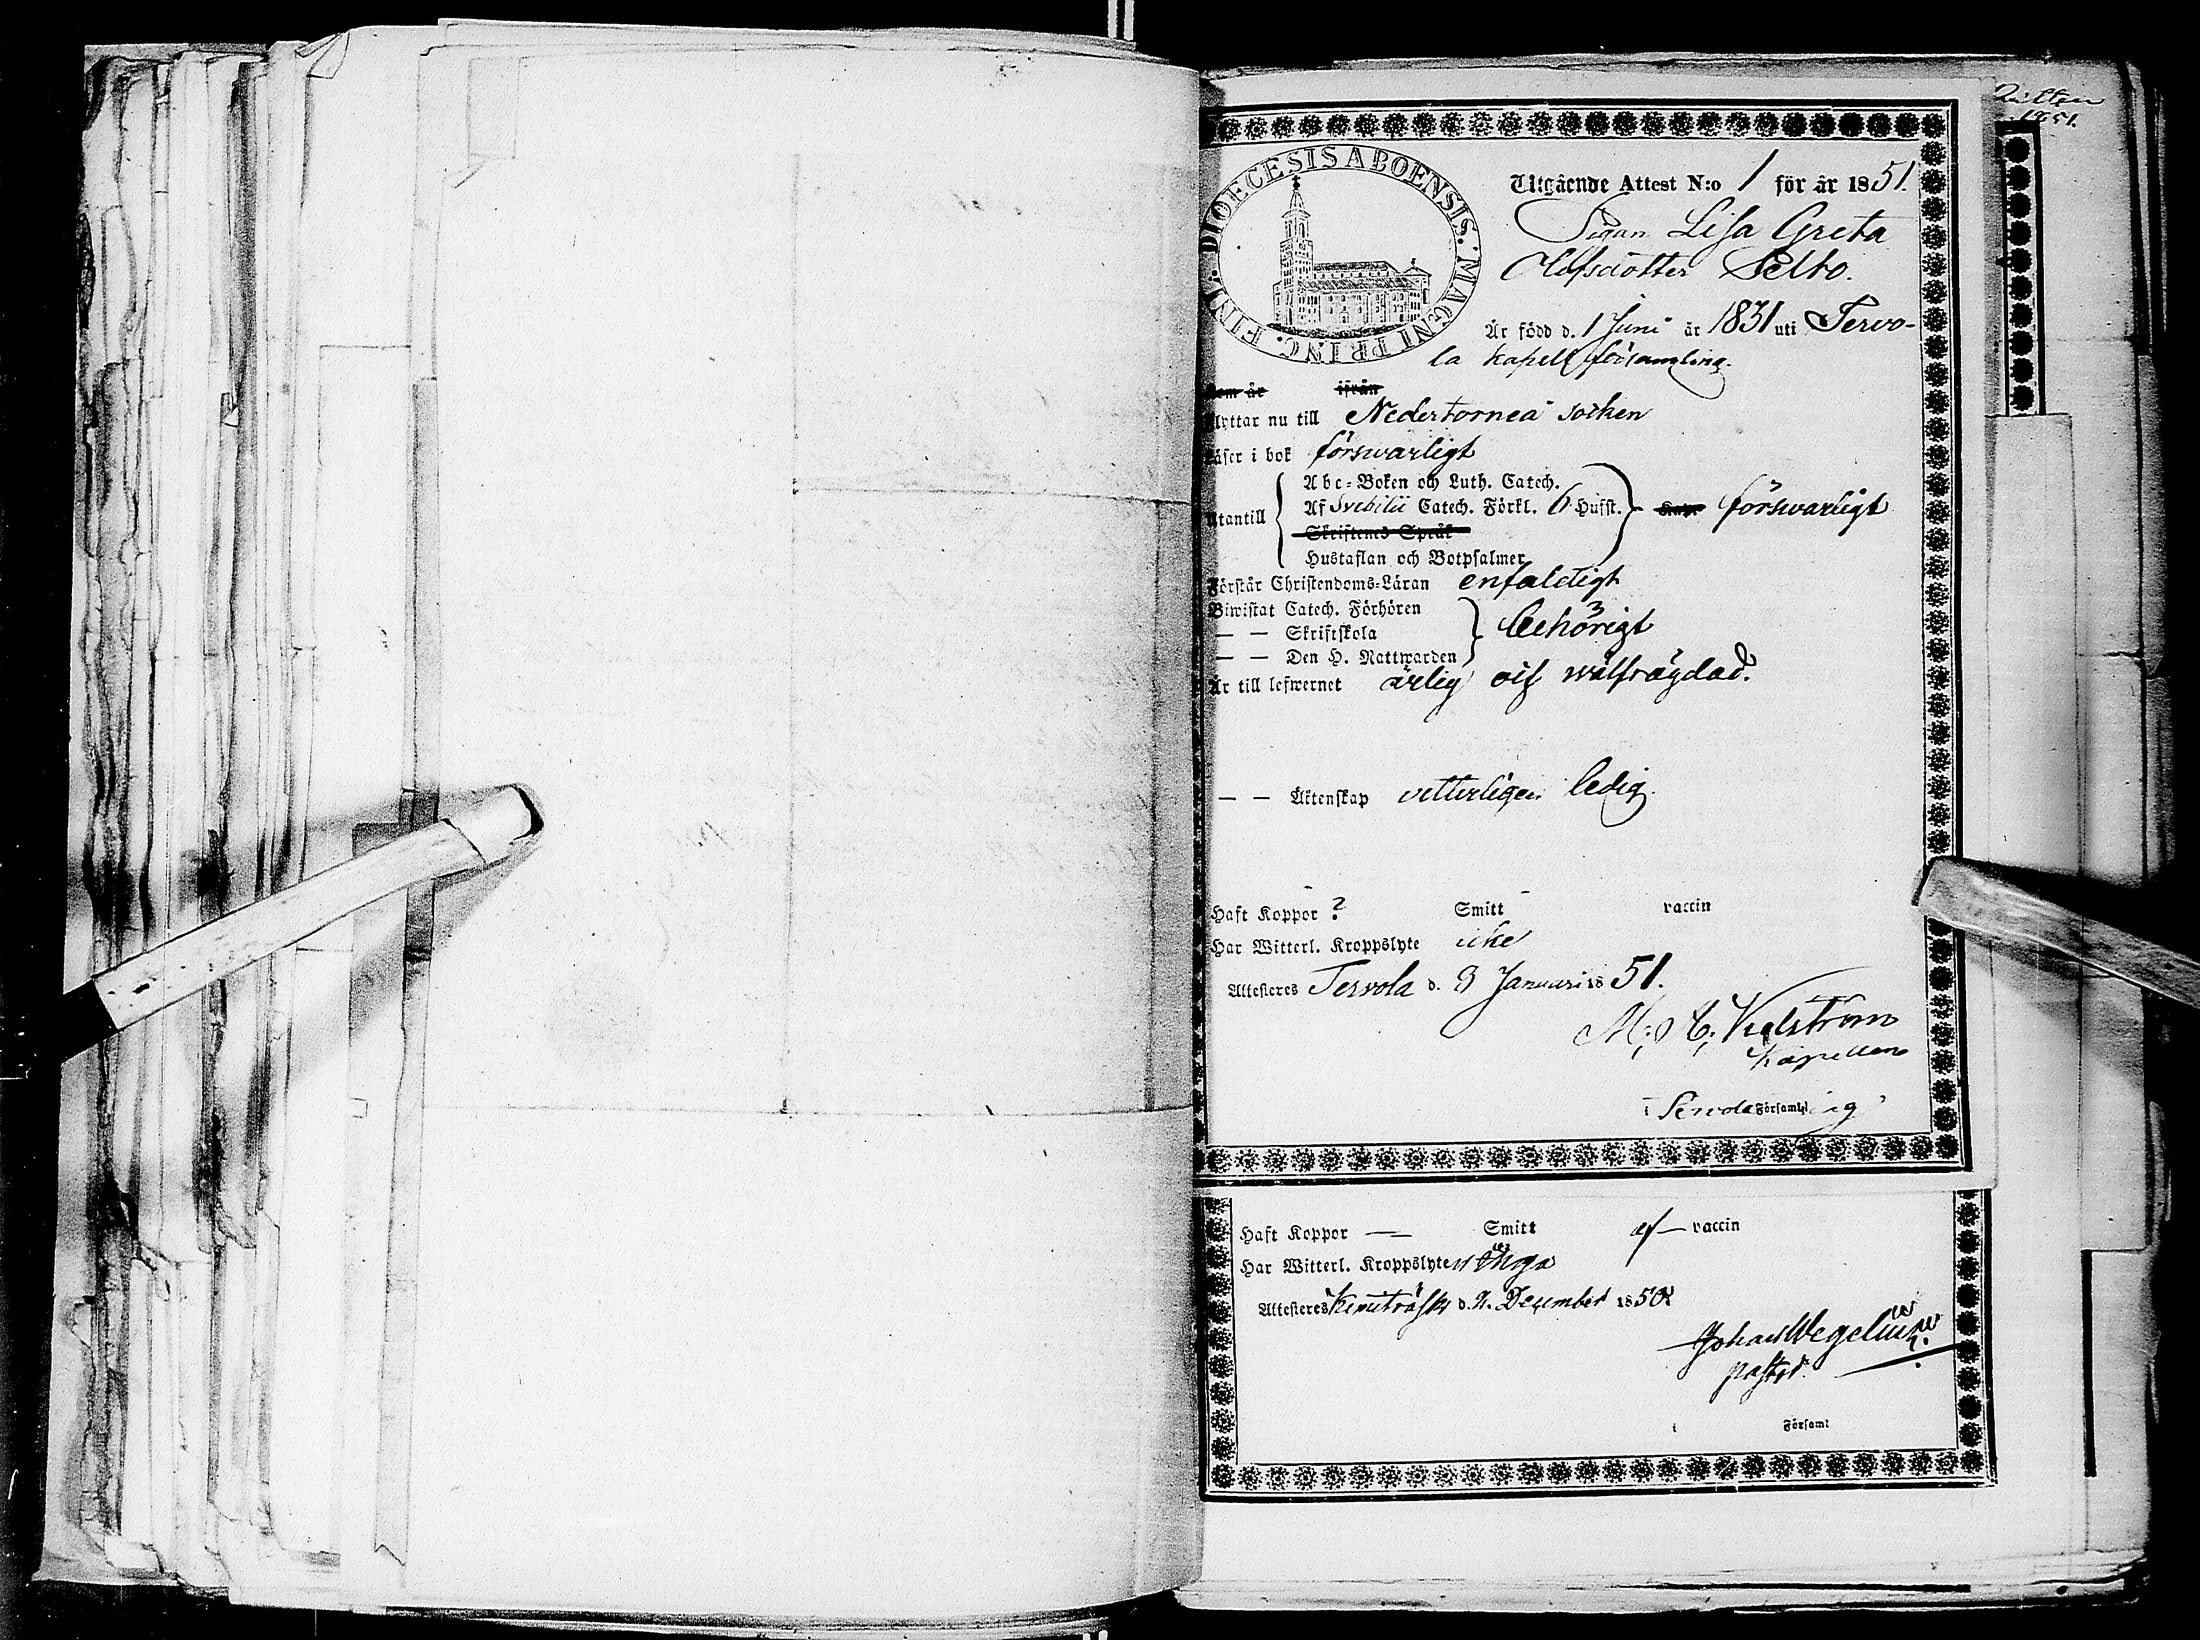 DIOECESIS ABOENSIS. MAGNI PRINC. FINL.
Utgående Attest N:o 1 för år 1851.
Pigan Lisa Greta
Olofsdotter Pelto.
Är född d. 1 Juni år 1831 uti Tervo-
la kapell församling.
Som år ifrån
Flyttar nu till Nedertorneå socken
Läser i bok förswarligt
Abc-Boken och Luth. Catech.
Utantill Af Svebilii Catech. Förkl. 6 Hufst. förswarligt
Skriftenes Språk
Hustaflan och Botpsalmer
Förstår Christendoms-Läran enfaldigt
Biwistat Catech. Förhören
— — Skriftskola behörigt
— — Den H. Nattwarden
Är till lefwernet ärlig och wälfrägdad.
— — Äktenskap vetterligen ledig.
Haft Koppor ? Smitt vaccin
Har Witterl. Kroppslyte icke
Attesteres Tervola d. 3 Januari 1851.
Kapellan
i Tervola Församling
Haft Koppor — Smitt af vaccin
Har Witterl. Kroppslyten inga
Attesteres Kemiträsk d. 2. December 1850
Johan Wegelius
pastor.
i Församl
1851.